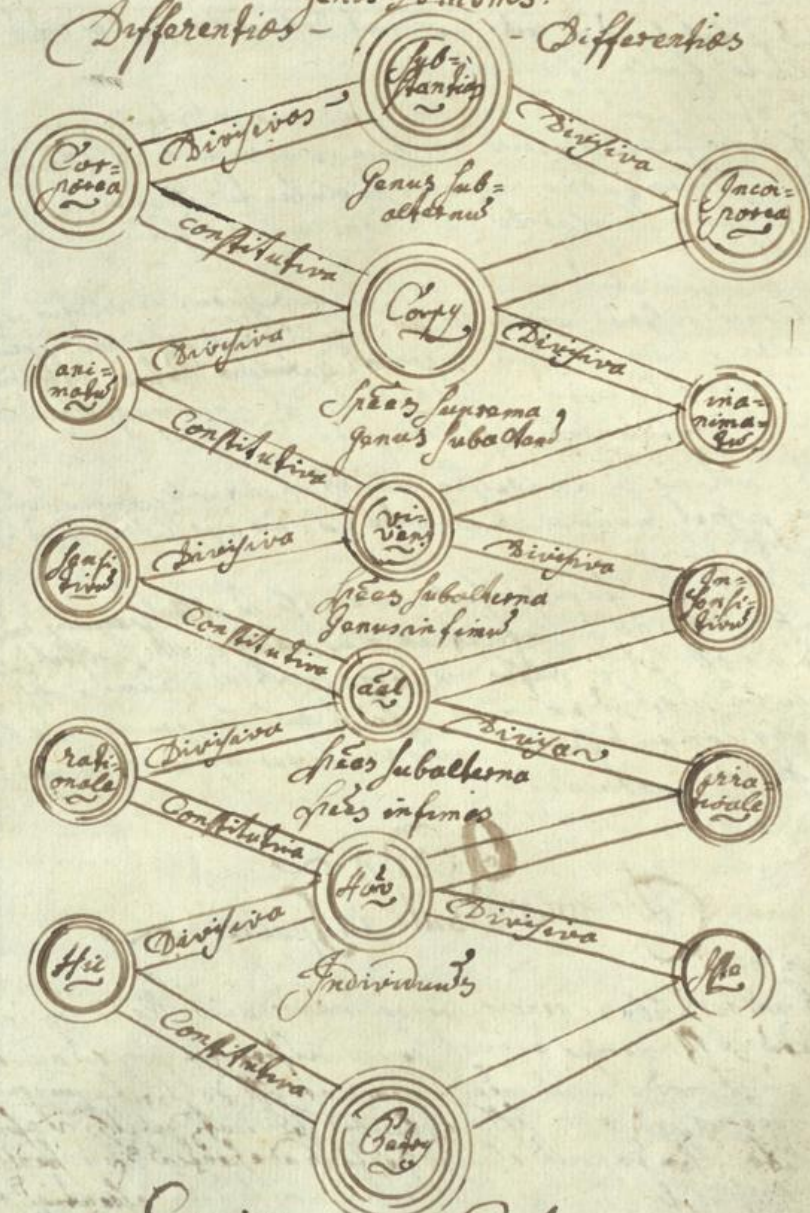 Differentiæ - - Differentiæ
Sub=
stantia
Divisivæ
Divisiva
Cor=
porea
Incor=
porea
Genus sub=
alternũ
constitutiva
Corpꝰ
Divisiva
Divisiva
ani=
matũ
ina=
nima=
tũ
Spẽes suprema,
Genus subalternũ
Constitutiva
vi=
vens
Divisiva
Divisiva
sensi=
tivũ
In=
sensi=
tivũ
Spẽes subalterna
Genus infimũ
Constitutiva
aãl
Divisiva
Divisa
rati=
onale
irra=
tiõale
Spẽes subalterna
Spẽes infima
Constitutiva
Homo
Divisiva
Divisiva
Hic
Ille
Individuum
Constitutiva
Petrꝰ